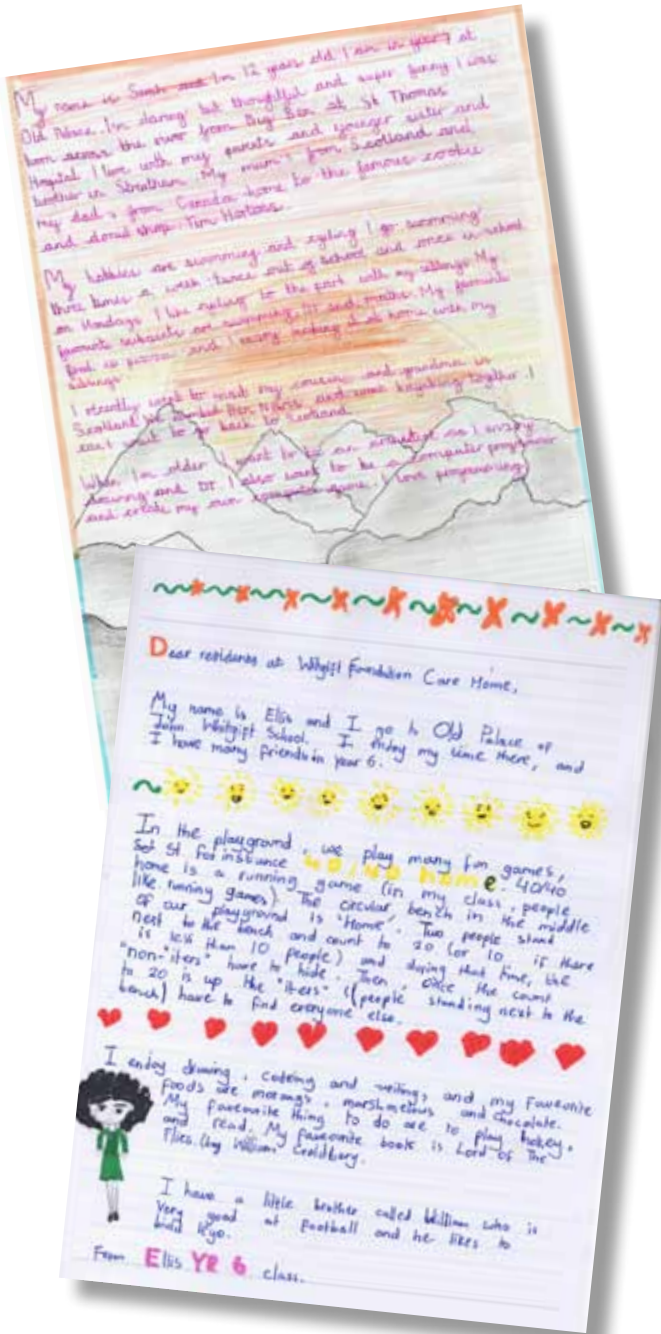 My name is Sarah and Im 12 years old I am in year 7 at
Old Palace. I'm clumsy but thoughtful and super funny I was
born across the river from Big Ben at St Thomas
Hospital I live with my parents and younger sister and
brother in Streatham. My mum's from Scotland and
my dad's from Canada home to the famous cookie
and donut shop: Tim Hortons.
My hobbies are swimming and cycling I go swimming
three times a week twice out of school and once in school
on Mondays. I like cycling to the park with my siblings My
favourite subjects are swimming, DT and maths. My favourite
food is pizza and I enjoy making it at home with my
siblings.
I recently went to visit my cousins and grandma in
Scotland We climbed Ben Nevis and went kayaking together. I
can't wait to go back to Scotland.
When I'm older I want to be an architect as I enjoy
drawing and DT. I also want to be a computer programmer
and create my own computer game. I love programming
Dear residents at Whitgift Foundation Care Home,
My name is Ellis and I go to Old Palace of
John Whitgift School. I enjoy my time there, and
I have many friends in year 6.
In the playground, we play many fun games,
Set St. For instance 40/40 home. 40/40
home is a running game (in my class, people
like running games). The circular bench in the middle
of our playground is "Home". Two people stand
next to the bench and count to 20 (or 10 if there
is less than 10 people) and during that time, the
"non-"iters" have to hide. Then, once the count
to 20 is up the "iters" ((people standing next to the
bench) have to find everyone else.
I enjoy drawing, codeing and writing, and my faveonite
foods are merangs, marshmelows and chocolate.
My faveourite thing to do are to play hokey,
and read. My faveourite book is Lord of The
Flies. (by William Goldbury.
I have a little brother called William who is
very good at football and he likes to
build lego.
From Ellis YR 6 class.